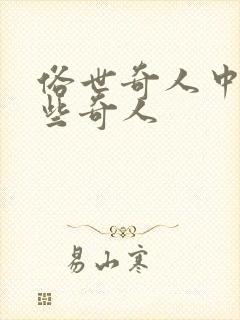 俗世奇人中
些奇人
易山寒